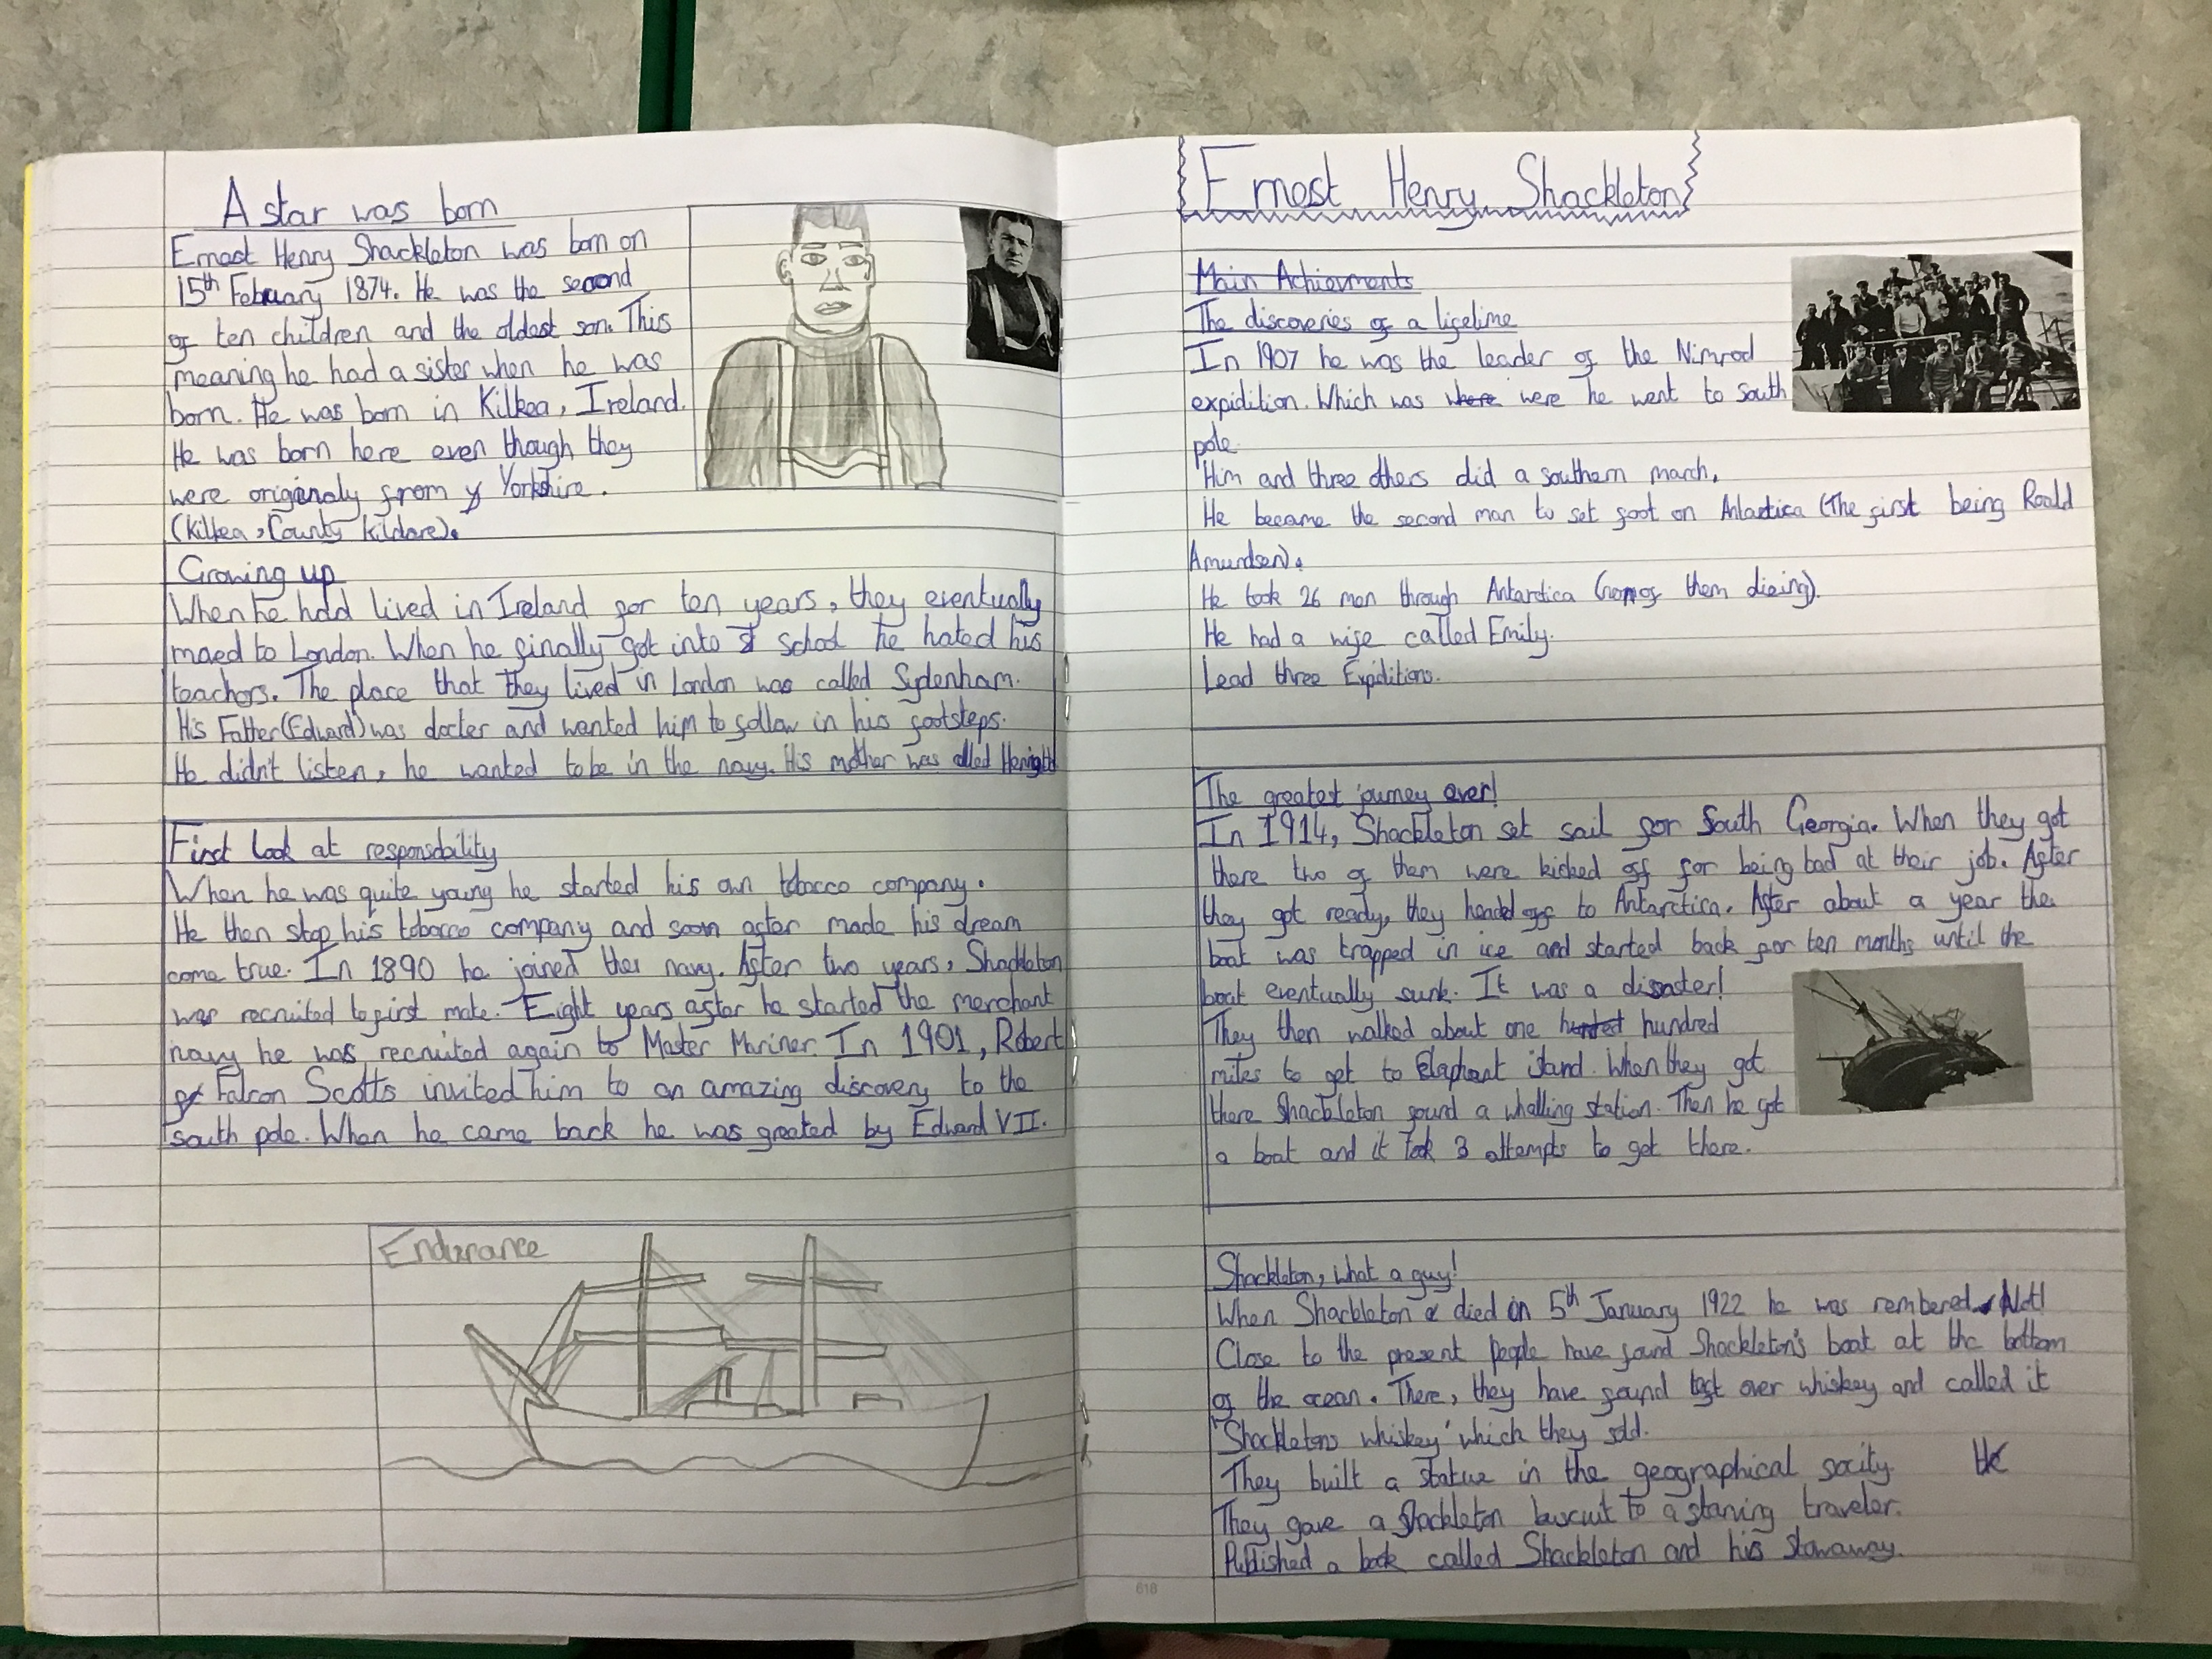 A star was born
Ernest Henry Shackleton was born on
15th February 1874. He was the second
of ten children and the oldest son. This
meaning he had a sister when he was
born. He was born in Kilkea, Ireland.
He was born here even though they
were originaly from y Yorkshire.
(Kilkea, County Kildare).
Growing up
When he had lived in Ireland for ten years, they eventually
moed to London. When he finally got into school he hated his
teachers. The place that they lived in London was called Sydenham.
His Father (Edward) was docter and wanted him to follow in his footsteps.
He didn't listen, he wanted to be in the navy. His mother was called
First Look at responsbility
When he was quite young he started his own tobacco company.
He then stop his tobacco company and soon after made his dream
come true. In 1890 he joined the navy. After two years, Shackleton
was recruited to first mate. Eight years after he started the merchant
navy he was recruited again to Master Mariner. In 1901, Robert
Falcon Scotts invited him to an amazing discovery to the
south pole. When he came back he was greated by Edward VII.
Endurance
Ernest Henry Shackleton
Main Achievments
The discoveries of a lifetime
In 1907 he was the leader of the Nimrod
expidition. Which was where were he went to south
pole.
Him and three others did a southern march,
He became the second man to set foot on Antartica (The first being Roald
Amundsen).
He took 26 men through Antarctica (non of them dieing).
He had a wife called Emily.
Lead three Expiditions.
The greatest journey ever!
In 1914, Shackleton set sail for South Georgia. When they got
there two of them were kicked off for being bad at their job. After
they got ready, they headed off to Antarctica. After about a year the
boat was trapped in ice and started back for ten months until the
boat eventually sunk. It was a disaster!
They then walked about one hundred
miles to get to Elaphant island. When they got
there Shackleton found a whalling station. Then he got
a boat and it took 3 attempts to get there.
Shackleton, what a guy!
When Shackleton died on 5th January 1922 he was rembered. Not!
Close to the present people have found Shackleton's boat at the bottom
of the ocean. There, they have found left over whiskey and called it
'Shackletons whiskey' which they sold.
They built a statue in the geographical socity. He
They gave a Shackleton buscuit to a starving traveler.
Published a book called Shackleton and his stowaway.
618